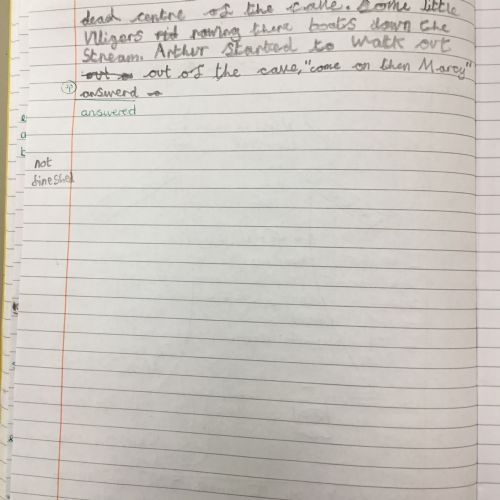 dead centre of the cave. Some little
Viligers rid rowing there boats down the
Stream. Arthur started to walk out
out of the cave, "come on then Marcy"
answerd
answered
not
fineshed